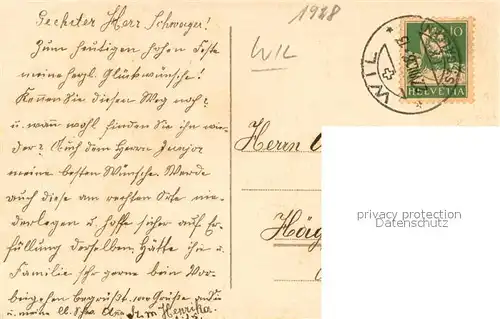 Geehrter Herr Schwager!
Zum heutigen hohen Feste
meine herzl. Glückwünsche!
Kennen Sie diesen Weg noch?
u. wann wohl finden Sie ihn wie-
der? Auch dem Herrn Major
meine besten Wünsche. Werde
auch diese am rechten Orte nie-
derlegen u. hoffe sicher auf Er-
füllung derselben. Hätte ihn u.
Familie sehr gerne beim Vor-
beigehen begrüßt. 1000 Grüße an Sie
u. meine lb.
1928
WIL
WIL
10
HELVETIA
Herrn
Häg
privacy protection
Datenschutz